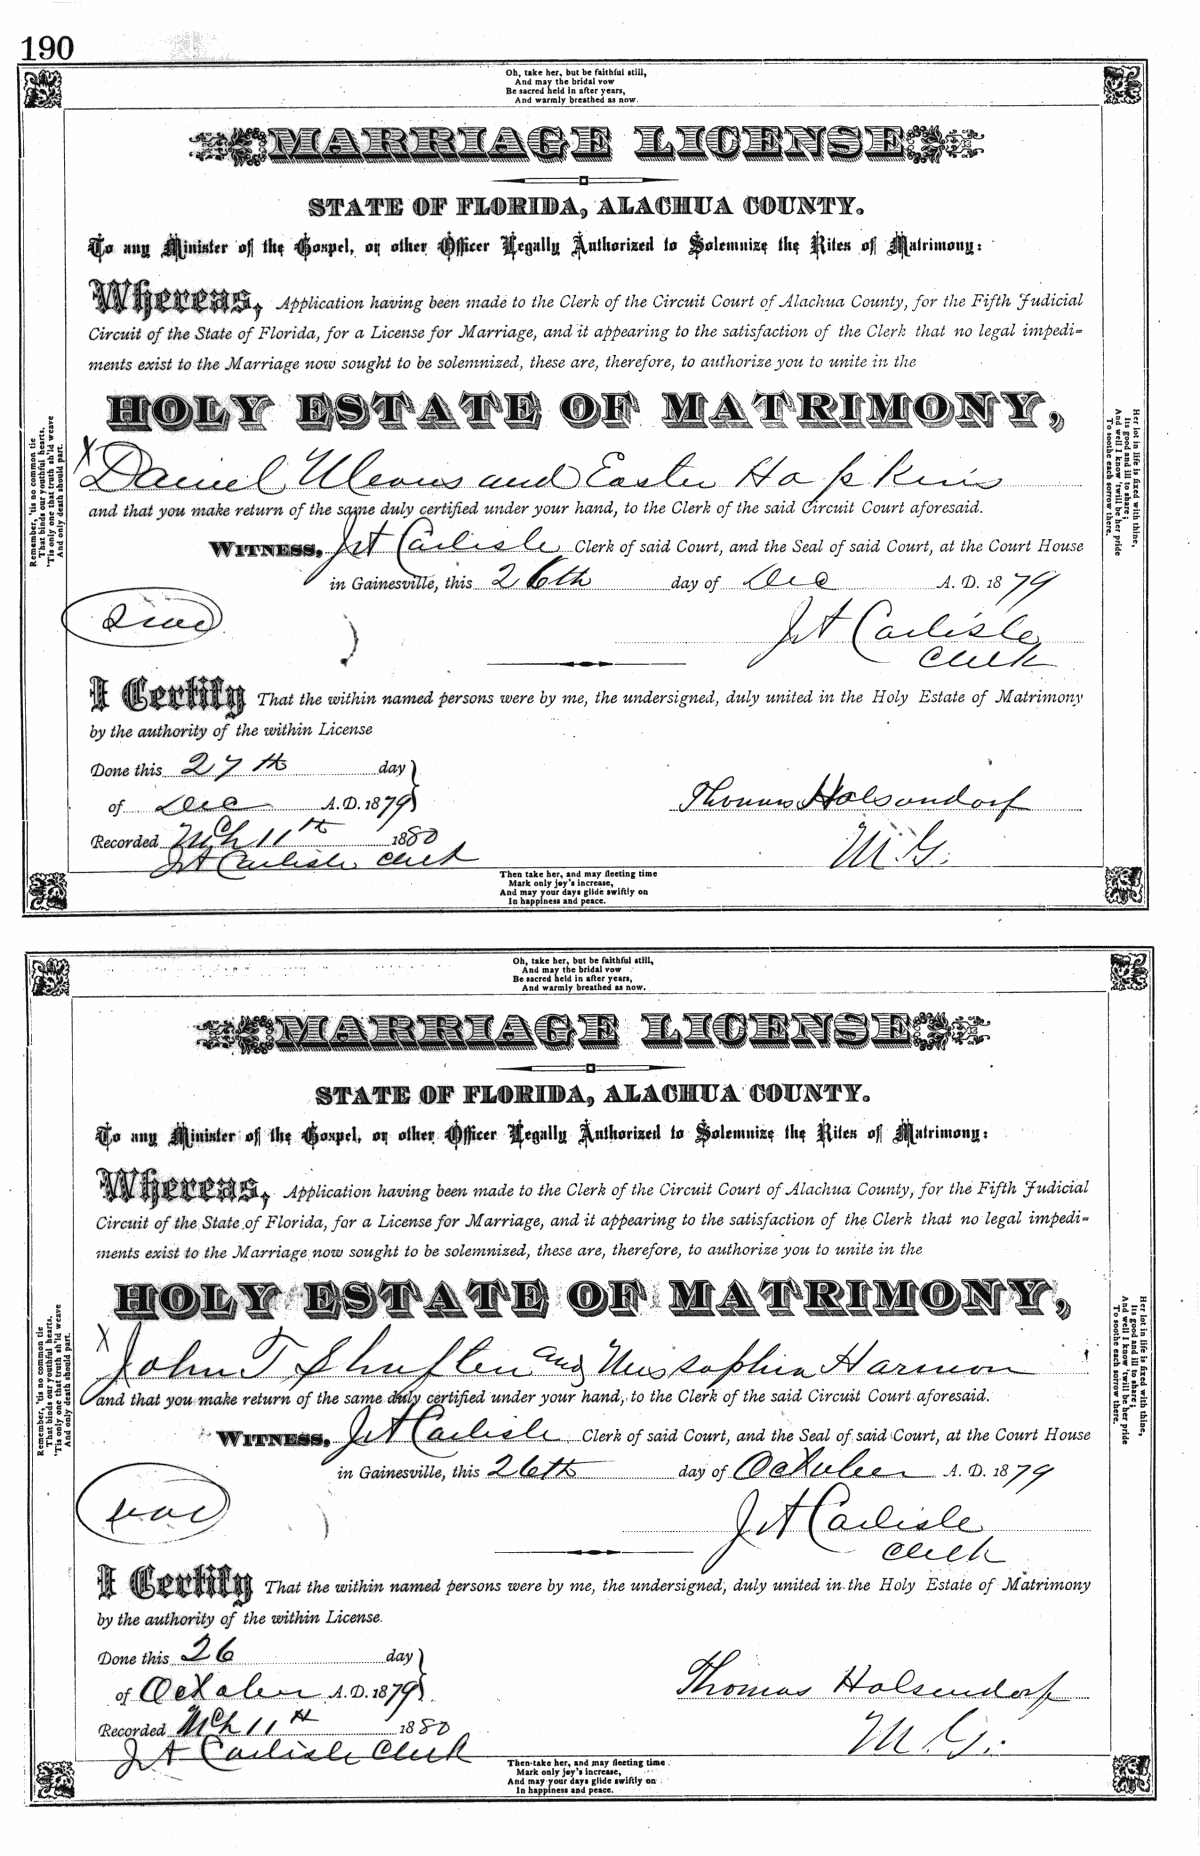 190
Oh, take her, but be faithful still,
And may the bridal vow
Be sacred held in after years,
And warmly breathed as now.
MARRIAGE LICENSE
STATE OF FLORIDA, ALACHUA COUNTY.
To any Minister of the Gospel, or other Officer Legally Authorized to Solemnize the Rites of Matrimony:
Whereas, Application having been made to the Clerk of the Circuit Court of Alachua County, for the Fifth Judicial
Circuit of the State of Florida, for a License for Marriage, and it appearing to the satisfaction of the Clerk that no legal impedi-
ments exist to the Marriage now sought to be solemnized, these are, therefore, to authorize you to unite in the
HOLY ESTATE OF MATRIMONY,
X Daniel Means and Easter Hopkins
and that you make return of the same duly certified under your hand, to the Clerk of the said Circuit Court aforesaid.
WITNESS, J A Carlisle Clerk of said Court, and the Seal of said Court, at the Court House
in Gainesville, this 26th day of Dec A. D. 1879
Seal
J A Carlisle
Clerk
I Certify That the within named persons were by me, the undersigned, duly united in the Holy Estate of Matrimony
by the authority of the within License
Done this 27th day
of Dec A.D. 1879
Thomas Holsendorf
M.G.
Recorded Mch 11th 1880
J A Carlisle Clerk
Then take her, and may fleeting time
Mark only joy's increase,
And may your days glide swiftly on
In happiness and peace.
Remember, 'tis no common tie
That binds our youthful hearts,
'Tis only one that truth sh'ld weave
And only death should part.
Her lot in life is fixed with thine,
Its good and ill to share;
And well I know 'twill be her pride
To soothe each sorrow there.
Oh, take her, but be faithful still,
And may the bridal vow
Be sacred held in after years,
And warmly breathed as now.
MARRIAGE LICENSE
STATE OF FLORIDA, ALACHUA COUNTY.
To any Minister of the Gospel, or other Officer Legally Authorized to Solemnize the Rites of Matrimony:
Whereas, Application having been made to the Clerk of the Circuit Court of Alachua County, for the Fifth Judicial
Circuit of the State of Florida, for a License for Marriage, and it appearing to the satisfaction of the Clerk that no legal impedi-
ments exist to the Marriage now sought to be solemnized, these are, therefore, to authorize you to unite in the
HOLY ESTATE OF MATRIMONY,
X John T Shuften and Miss Sophia Harmon
and that you make return of the same duly certified under your hand, to the Clerk of the said Circuit Court aforesaid.
WITNESS, J A Carlisle Clerk of said Court, and the Seal of said Court, at the Court House
in Gainesville, this 26th day of October A. D. 1879
Seal
J A Carlisle
Clerk
I Certify That the within named persons were by me, the undersigned, duly united in the Holy Estate of Matrimony
by the authority of the within License.
Done this 26 day
of October A.D. 1879
Thomas Holsendorf
M.G.
Recorded Mch 11th 1880
J A Carlisle Clerk
Then take her, and may fleeting time
Mark only joy's increase,
And may your days glide swiftly on
In happiness and peace.
Remember, 'tis no common tie
That binds our youthful hearts,
'Tis only one that truth sh'ld weave
And only death should part.
Her lot in life is fixed with thine,
Its good and ill to share;
And well I know 'twill be her pride
To soothe each sorrow there.